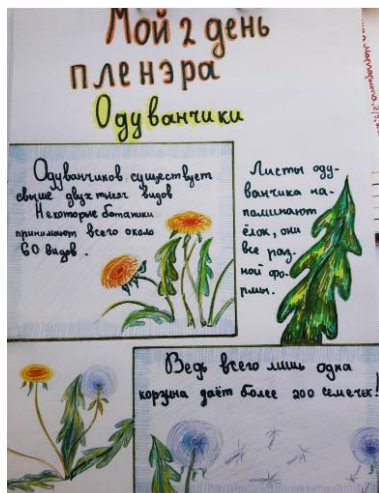 Мой 2 день
пленэра
Одуванчики
Одуванчиков существует
свыше двух тысяч видов
Некоторые ботаники
принимают всего около
60 видов.
Листы оду-
ванчика на-
паминают
ёлок, они
все раз-
ной фо-
рмы.
Ведь всего лишь одна
корзина даёт более 200 семечек!